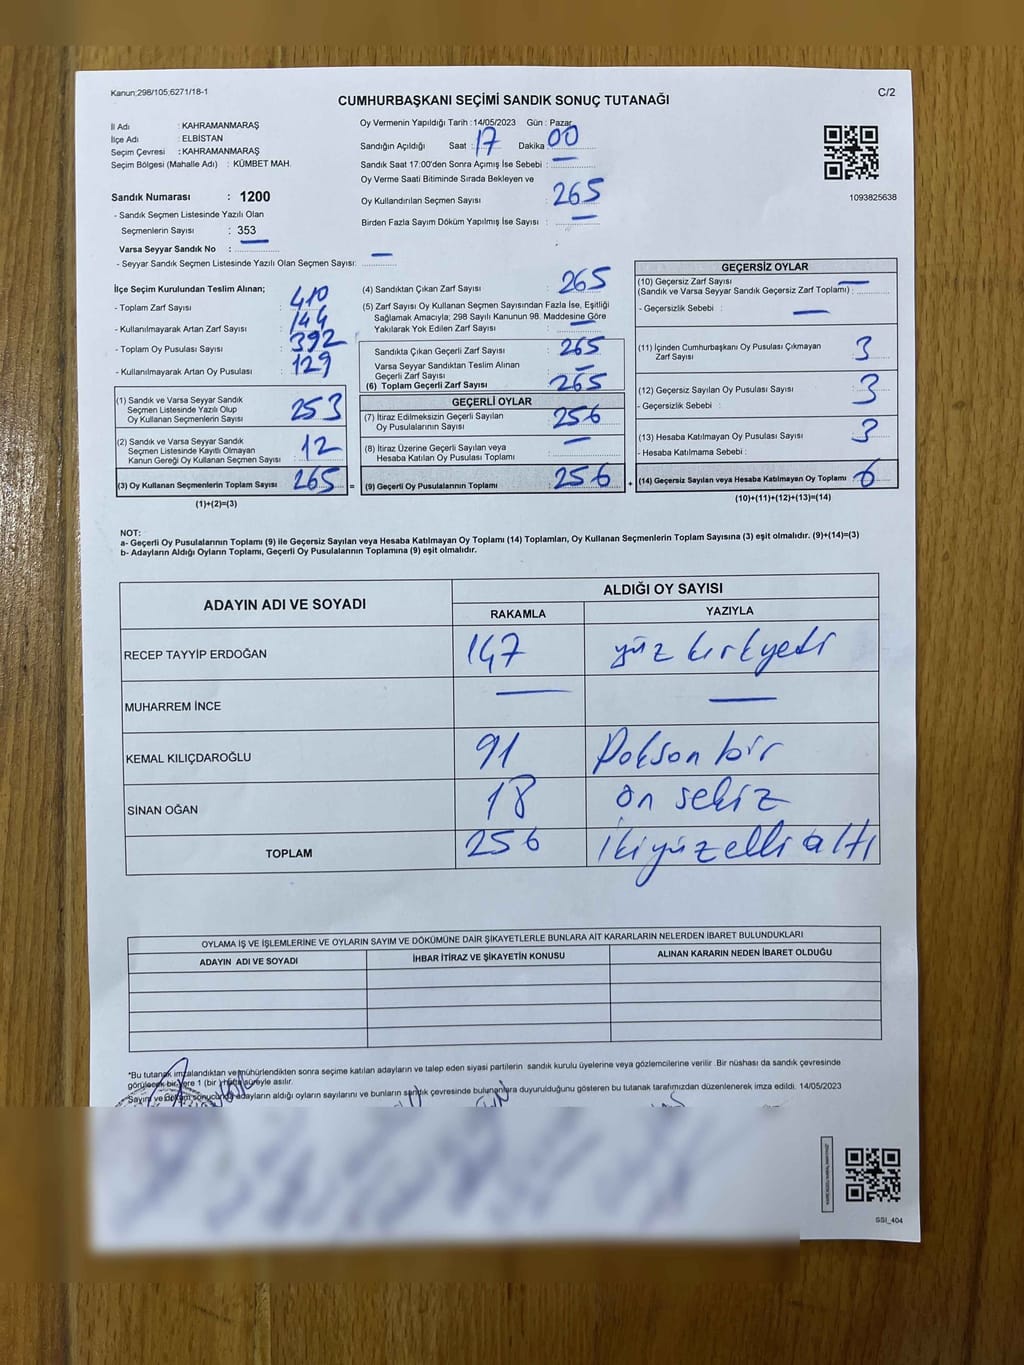 Kanun;298/105;6271/18-1
C/2
CUMHURBAŞKANI SEÇİMİ SANDIK SONUÇ TUTANAĞI
İl Adı : KAHRAMANMARAŞ
İlçe Adı : ELBİSTAN
Seçim Çevresi : KAHRAMANMARAŞ
Seçim Bölgesi (Mahalle Adı) : KÜMBET MAH.
Sandık Numarası : 1200
- Sandık Seçmen Listesinde Yazılı Olan
Seçmenlerin Sayısı : 353
Varsa Seyyar Sandık No : —
- Seyyar Sandık Seçmen Listesinde Yazılı Olan Seçmen Sayısı: —
Oy Vermenin Yapıldığı Tarih : 14/05/2023 Gün : Pazar
Sandığın Açıldığı Saat : 17 Dakika 00
Sandık Saat 17:00'den Sonra Açımış İse Sebebi : —
Oy Verme Saati Bitiminde Sırada Bekleyen ve
Oy Kullandırılan Seçmen Sayısı : 265
Birden Fazla Sayım Döküm Yapılmış İse Sayısı : —
1093825638
İlçe Seçim Kurulundan Teslim Alınan;
- Toplam Zarf Sayısı : 410
- Kullanılmayarak Artan Zarf Sayısı : 144
- Toplam Oy Pusulası Sayısı : 392
- Kullanılmayarak Artan Oy Pusulası : 129
(1) Sandık ve Varsa Seyyar Sandık
Seçmen Listesinde Yazılı Olup
Oy Kullanan Seçmenlerin Sayısı : 253
(2) Sandık ve Varsa Seyyar Sandık
Seçmen Listesinde Kayıtlı Olmayan
Kanun Gereği Oy Kullanan Seçmen Sayısı : 12
(3) Oy Kullanan Seçmenlerin Toplam Sayısı : 265
(1)+(2)=(3)
(4) Sandıktan Çıkan Zarf Sayısı : 265
(5) Zarf Sayısı Oy Kullanan Seçmen Sayısından Fazla İse, Eşitliği
Sağlamak Amacıyla; 298 Sayılı Kanunun 98. Maddesine Göre
Yakılarak Yok Edilen Zarf Sayısı : —
Sandıkta Çıkan Geçerli Zarf Sayısı : 265
Varsa Seyyar Sandıktan Teslim Alınan
Geçerli Zarf Sayısı : —
(6) Toplam Geçerli Zarf Sayısı : 265
GEÇERLİ OYLAR
(7) İtiraz Edilmeksizin Geçerli Sayılan
Oy Pusulalarının Sayısı : 256
(8) İtiraz Üzerine Geçerli Sayılan veya
Hesaba Katılan Oy Pusulası Toplamı : —
= (9) Geçerli Oy Pusulalarının Toplamı : 256
GEÇERSİZ OYLAR
(10) Geçersiz Zarf Sayısı
(Sandık ve Varsa Seyyar Sandık Geçersiz Zarf Toplamı) : —
- Geçersizlik Sebebi : —
(11) İçinden Cumhurbaşkanı Oy Pusulası Çıkmayan
Zarf Sayısı : 3
(12) Geçersiz Sayılan Oy Pusulası Sayısı : 3
- Geçersizlik Sebebi :
(13) Hesaba Katılmayan Oy Pusulası Sayısı : 3
- Hesaba Katılmama Sebebi :
+ (14) Geçersiz Sayılan veya Hesaba Katılmayan Oy Toplamı : 6
(10)+(11)+(12)+(13)=(14)
NOT:
a- Geçerli Oy Pusulalarının Toplamı (9) ile Geçersiz Sayılan veya Hesaba Katılmayan Oy Toplamı (14) Toplamları, Oy Kullanan Seçmenlerin Toplam Sayısına (3) eşit olmalıdır. (9)+(14)=(3)
b- Adayların Aldığı Oyların Toplamı, Geçerli Oy Pusulalarının Toplamına (9) eşit olmalıdır.
ADAYIN ADI VE SOYADI
ALDIĞI OY SAYISI
RAKAMLA YAZIYLA
RECEP TAYYİP ERDOĞAN 147 yüz kırkyedi
MUHARREM İNCE — —
KEMAL KILIÇDAROĞLU 91 Doksan bir
SİNAN OĞAN 18 on sekiz
TOPLAM 256 ikiyüz elli altı
OYLAMA İŞ VE İŞLEMLERİNE VE OYLARIN SAYIM VE DÖKÜMÜNE DAİR ŞİKAYETLERLE BUNLARA AİT KARARLARIN NELERDEN İBARET BULUNDUKLARI
ADAYIN ADI VE SOYADI İHBAR İTİRAZ VE ŞİKAYETİN KONUSU ALINAN KARARIN NEDEN İBARET OLDUĞU
*Bu tutanak imzalandıktan ve mühürlendikten sonra seçime katılan adayların ve talep eden siyasi partilerin sandık kurulu üyelerine veya gözlemcilerine verilir .Bir nüshası da sandık çevresinde
görülecek bir yere 1 (bir ) hafta süreyle asılır.
Sayım ve döküm sonucunda adayların aldığı oyların sayılarını ve bunların sandık çevresinde bulunanlara duyurulduğunu gösteren bu tutanak tarafımızdan düzenlenerek imza edildi. 14/05/2023
SSI_404